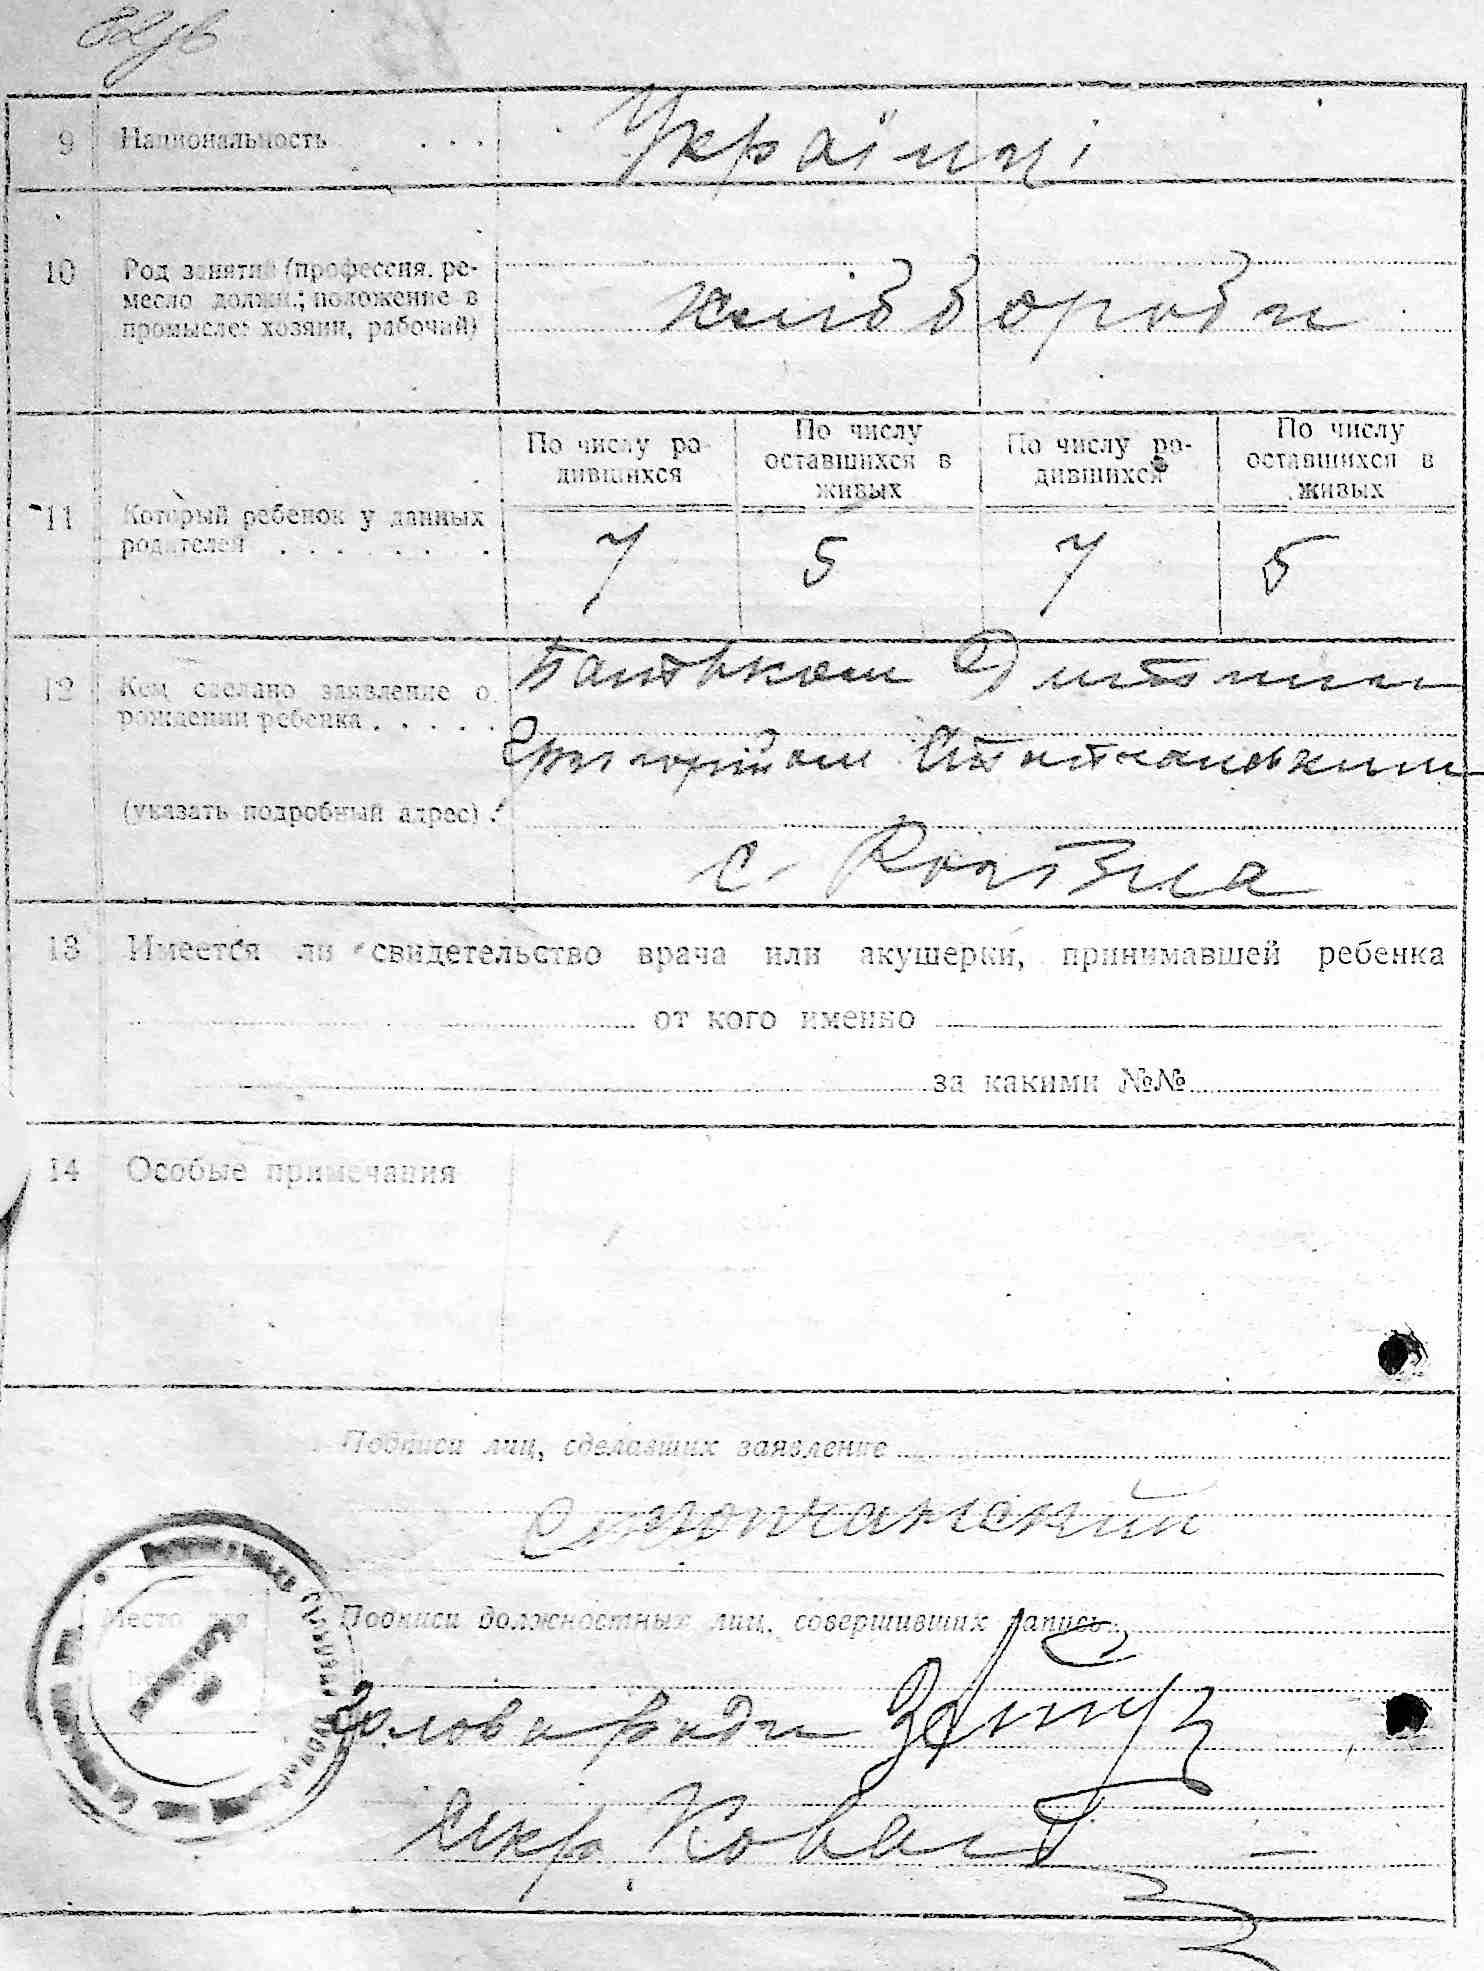 82зв
9 Национальность . . .
Українці
10 Род занятий (профессия, ре-
месло должн.; положение в
промысле: хозяин, рабочий)
хлібороби
По числу ро-
дившихся
По числу
оставшихся в
живых
По числу ро-
дившихся
По числу
оставшихся в
живых
11 Который ребенок у данных
родителей . . . . . . .
7 5 7 5
12 Кем сделано заявление о
рождении ребенка . . . . .
(указать подробный адрес) .
Батьком Дитини
Григорієм
с.
13 Имеется ли свидетельство врача или акушерки, принимавшей ребенка
от кого именно
за какими №№
14 Особые примечания
Подписи лиц, сделавших заявление
Место для
печати
Подписи должностных лиц, совершивших запись
Голова ради
Секр Коваль